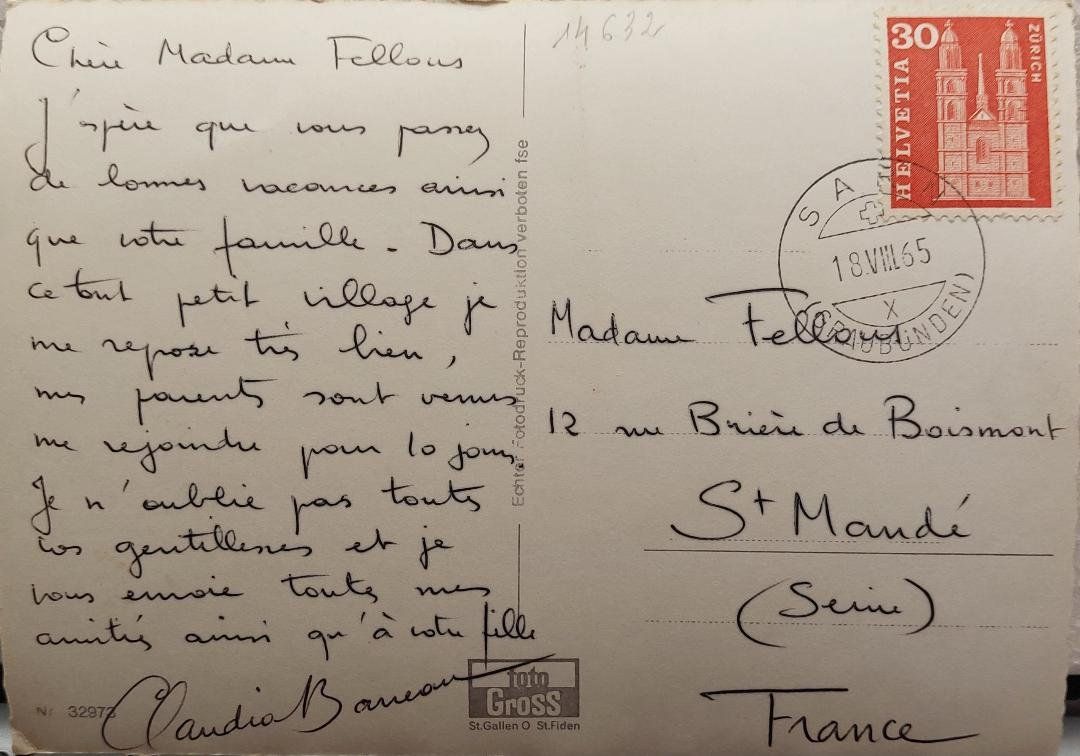 Chère Madame Fellous
J'espère que vous passez
de bonnes vacances ainsi
que votre famille. Dans
ce tout petit village je
me repose très bien,
mes parents sont venus
me rejoindre pour 10 jours.
Je n'oublie pas toutes
vos gentillesses et je
vous envoie toutes mes
amitiés ainsi qu'à votre fille
Claudia
Nr. 32973
Echter Fotodruck-Reproduktion verboten fse
foto
Gross
St.Gallen O St.Fiden
14632
30
HELVETIA
ZÜRICH
18.VIII.65
X
(GRAUBÜNDEN)
Madame Fellous
12 rue Brière de Boismont
St Mandé
(Seine)
France